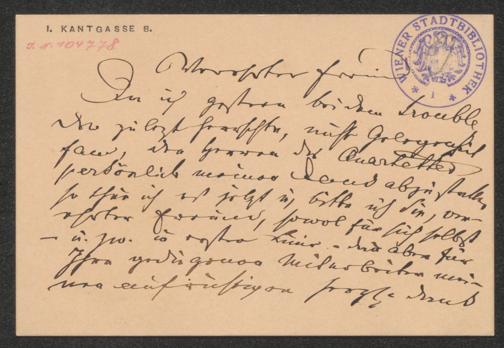 I. KANTGASSE 6.
J. N. 104778
WIENER STADTBIBLIOTHEK
Verehrter Freund
Da ich gestern bei dem Trouble
der zuletzt herrschte, nicht Gelegenheit
fand, den Herren des Quartettes
persönlich meinen Dank abzustatten
so thu ich es jetzt u. bitte ich Sie, ver-
ehrter Freund, sowol für sich selbst
– u. zw. in erster Linie – dann aber für
Ihre gediegenen Mitarbeiter mei-
nen aufrichtigen Dank